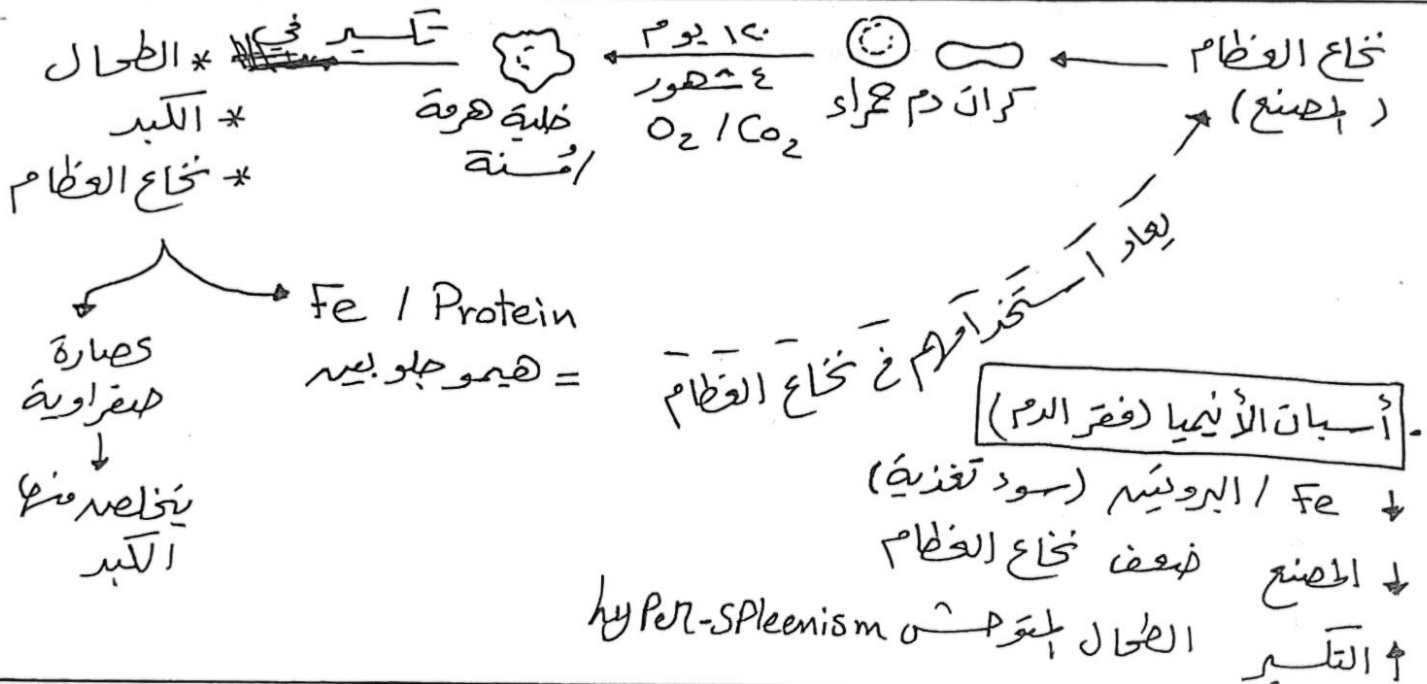 نخاع العظام
(المصنع)
كرات دم حمراء
١٢٠ يوم
٤ شهور
O₂ / CO₂
خلية هرمة
/مُسنة
تكسير في
* الطحال
* الكبد
* نخاع العظام
Fe / Protein
= هيموجلوبين
عصارة
صفراوية
يتخلص منها
الكبد
يعاد استخدامهم في نخاع العظام
أسباب الأنيميا (فقر الدم)
↓ Fe / البروتين (سوء تغذية)
↓ المصنع ضعف نخاع العظام
↑ التكسير الطحال المتوحش hyper-spleenism